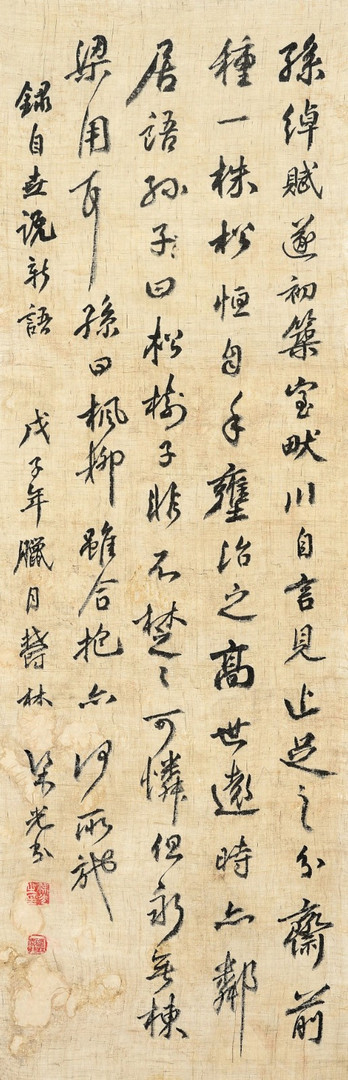 孫綽賦遂初築室畎川自言見止足之分齋前
種一株松恒自手壅治之高世遠時亦鄰
居語孙子曰松樹子非不楚〻可憐但永無棟
梁用耳孫曰楓柳雖合抱亦何所施
錄自世说新語 戊子年臘月鬱林 梁光